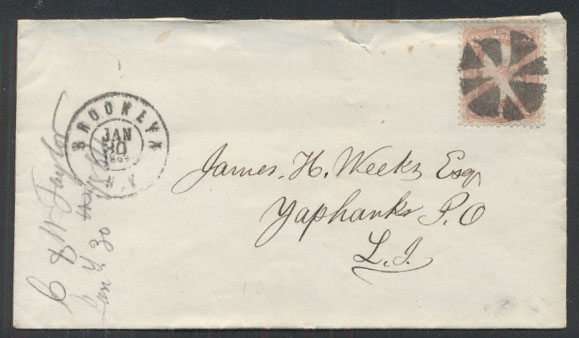 BROOKLYN
JAN
30
N.Y.
James. H. Weeks Esq
Yaphanks P.O
L.I.
Taylor
Jan y 30